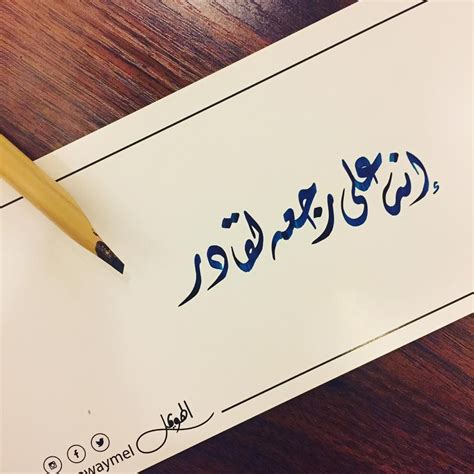 إنه على رجعه لقادر
الهويمل
waymel